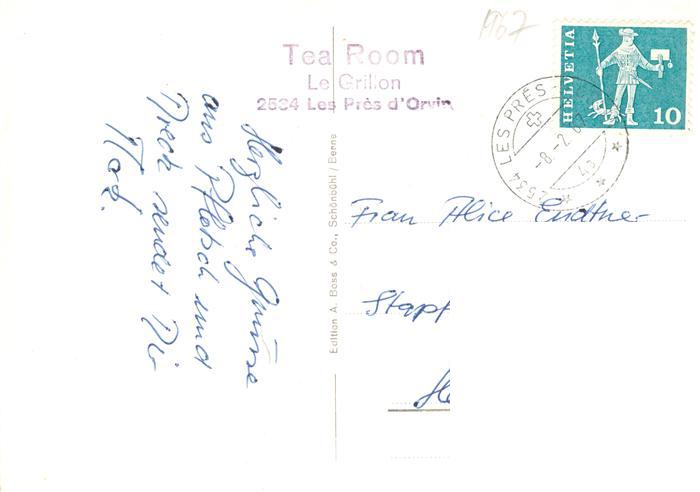 1967
Tea Room
Le Grillon
2534 Les Prés d'Orvin
HELVETIA
10
2534 LES PRÉS-
-8.-2.67
Herzliche Grüsse
aus Pflotsch und
Dreck sendet Dir
Edition A. Boss & Co., Schönbühl / Berne
Frau Alice Endtner
Stapf